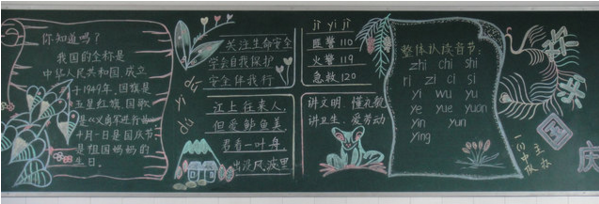 你知道吗？
我国的全称是
中华人民共和国，成立
于1949年，国旗是
五星红旗，国歌
是《义勇军进行曲》
十月一日是国庆节
是祖国妈妈的
生日。
dú yi dú
关注生命安全
学会自我保护
安全伴我行
江上往来人，
但爱鲈鱼美。
君看一叶舟，
出没风波里
jì yi jì
匪警 110
火警 119
急救 120
讲文明、懂礼貌
讲卫生、爱劳动
整体认读音节：
zhi chi shi
ri zi ci si
yi wu yu
ye yue yuan
yin yun
ying
欢乐国庆
一(1)中队
主办